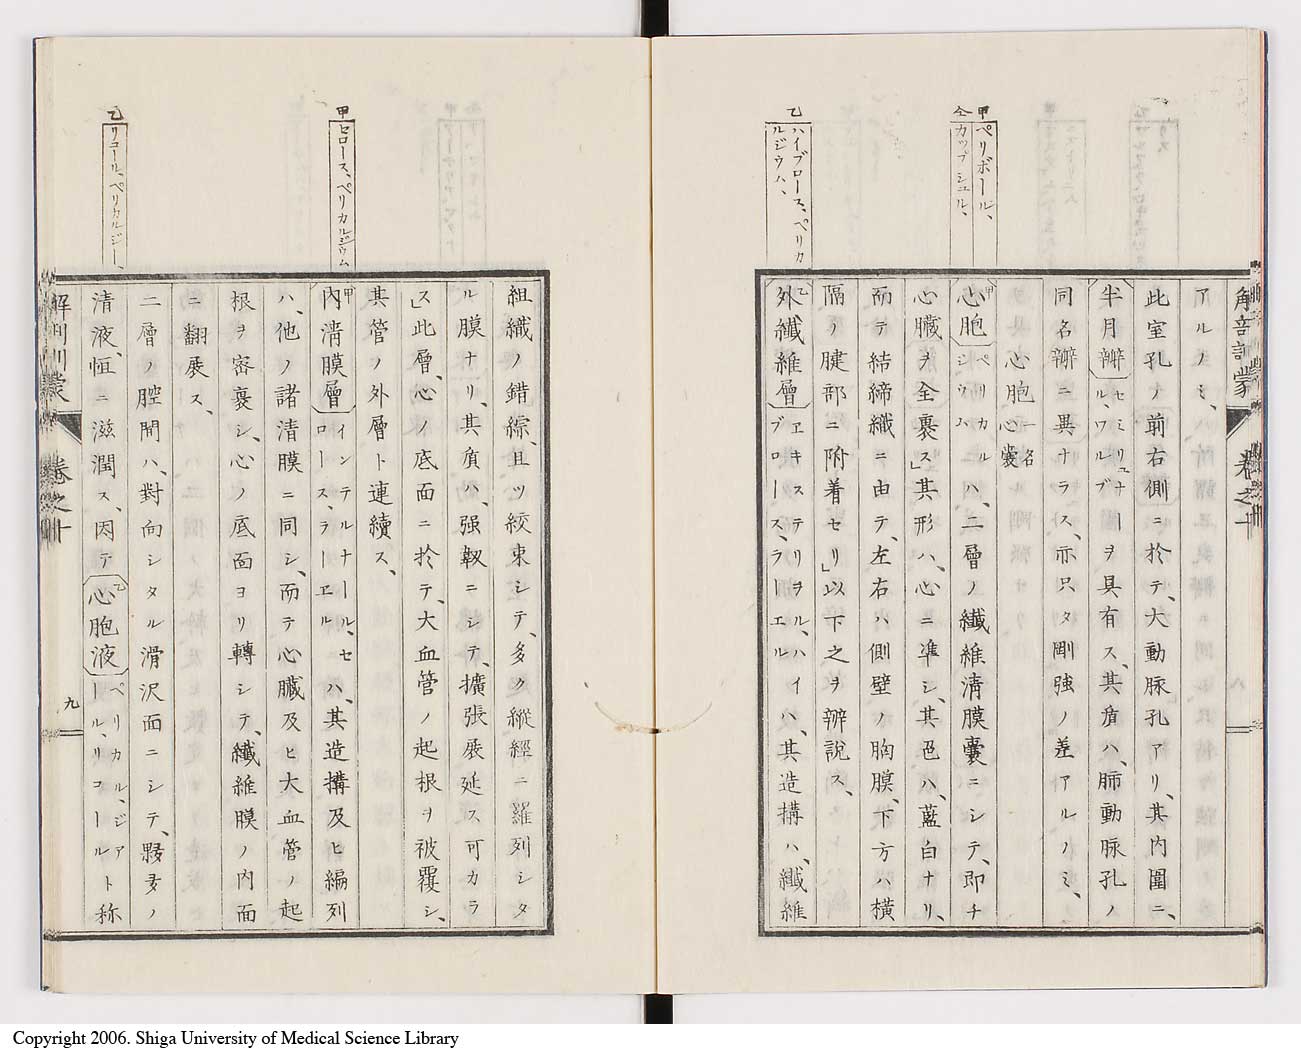 甲 ペリボール、
仝 カップシュル、
乙 ハイブロース、ペリカ
ルジウム、
解剖訓蒙 卷之十
アルノミ、
此室孔ノ前右側ニ於テ、大動脉孔アリ、其内圍ニ、
半月瓣 セミリュナール、ワルブー ヲ具有ス、其質ハ、肺動脉孔ノ
同名瓣ニ異ナラス、亦只タ剛強ノ差アルノミ、
心胞 一名心囊
甲心胞 ペリカルジウム ハ、二層ノ纎維淸膜囊ニシテ、即チ
心臟ヲ全裹ス」其形ハ、心ニ準シ、其色ハ、藍白ナリ、
而テ結締纎ニ由テ、左右ハ側壁ノ胸膜、下方ハ横
隔ノ腱部ニ附着セリ」以下之ヲ辨説ス、
乙外纎維層 ヱキステリヲル、ハイブロース、ラーエル ハ、其造搆ハ、纎維
甲 セロース、ペリカルジウム
乙 リコール、ペリカルジー、
組織ノ錯綜、且ツ絞束シテ、多ク縱經ニ羅列シタ
ル膜ナリ、其質ハ、强靱ニシテ、擴張展延ス可カラ
ス」此層、心ノ底面ニ於テ、大血管ノ起根ヲ被覆シ、
其管ノ外層ト連續ス、
甲内淸膜層 インテルナール、セロース、ラーエル ハ、其造搆及ヒ編列
ハ、他ノ諸清膜ニ同シ、而テ心臟及ヒ大血管ノ起
根ヲ容裹シ、心ノ底面ヨリ轉シテ、纎維膜ノ内面
ニ翻展ス、
二層ノ腔間ハ、對向シタル滑沢面ニシテ、夥多ノ
清液、恒ニ滋潤ス、因テ乙心胞液 ペリカルジアール、リコール ト称
解剖訓蒙 卷之十 九
Copyright 2006. Shiga University of Medical Science Library